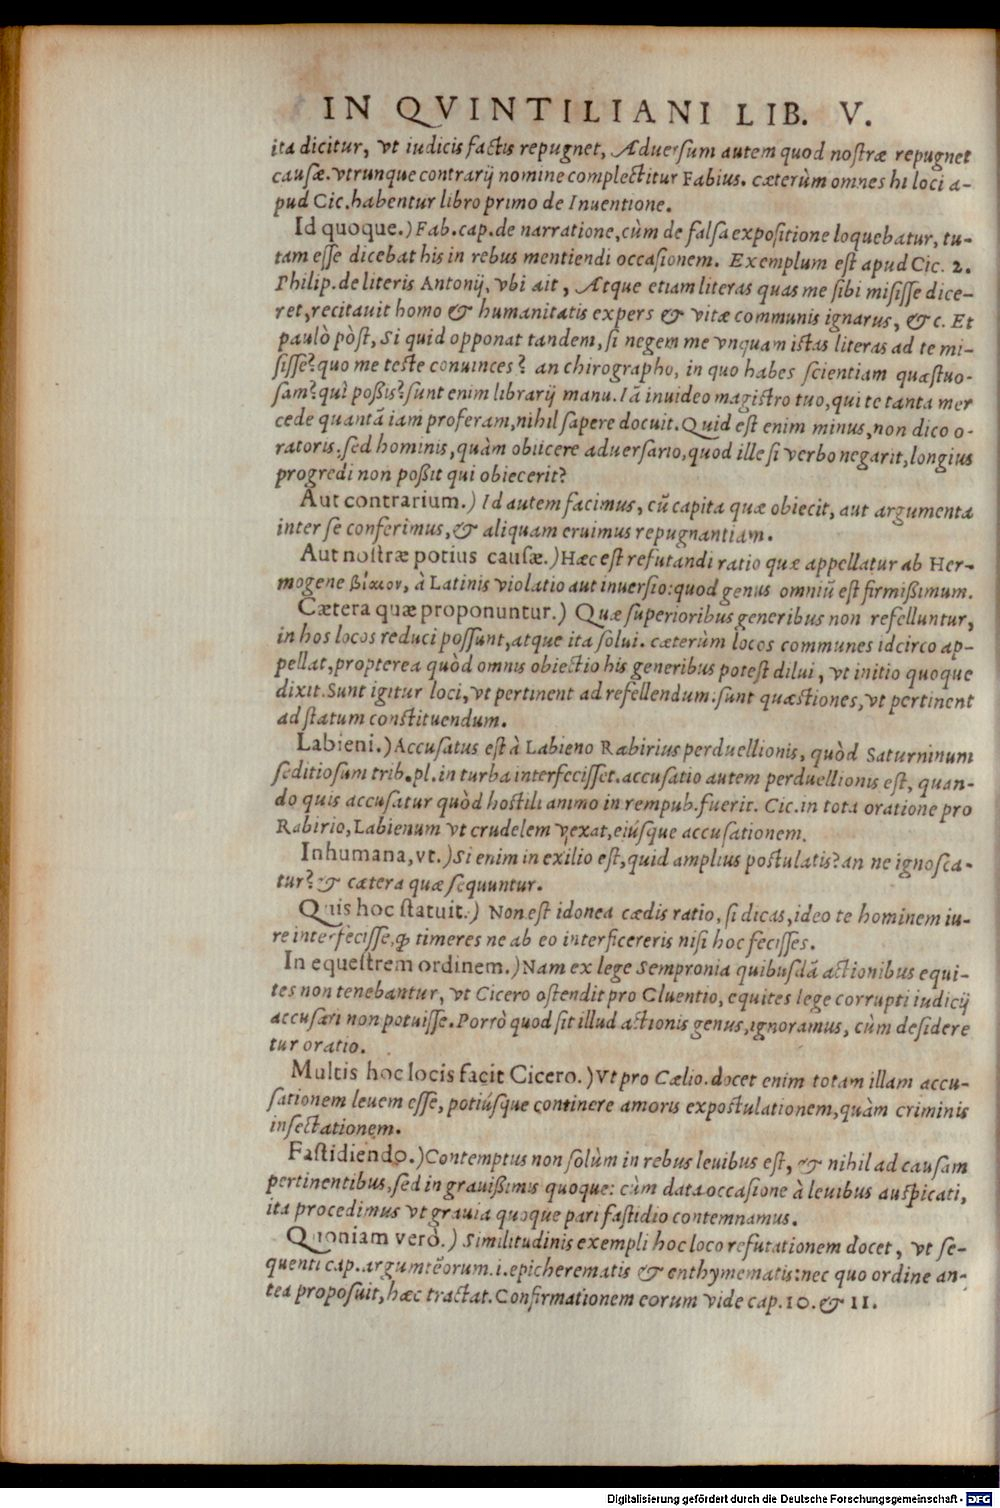 IN QVINTILIANI LIB. V.
ita dicitur, vt iudicis factis repugnet, Aduersum autem quod nostræ repugnet
causæ. vtrunque contrarij nomine complectitur Fabius. cæterùm omnes hi loci a-
pud Cic. habentur libro primo de Inuentione.
Id quoque.) Fab. cap. de narratione, cùm de falsa expositione loquebatur, tu-
tam esse dicebat his in rebus mentiendi occasionem. Exemplum est apud Cic. 2.
Philip. de literis Antonij, vbi ait, Atque etiam literas quas me sibi misisse dice-
ret, recitauit homo & humanitatis expers & vitæ communis ignarus, &c. Et
paulò pòst, Si quid opponat tandem, si negem me vnquam istas literas ad te mi-
sisse? quo me teste conuinces? an chirographo, in quo habes scientiam quæstuo-
sam? quì poßis? sunt enim librarij manu. Iã inuideo magistro tuo, qui te tanta mer
cede quantã iam proferam, nihil sapere docuit. Quid est enim minus, non dico o-
ratoris. sed hominis, quàm obiicere aduersario, quod ille si verbo negarit, longius
progredi non poßit qui obiecerit?
Aut contrarium.) Id autem facimus, cũ capita quæ obiecit, aut argumenta
inter se conferimus, & aliquam eruimus repugnantiam.
Aut nostræ potius causæ.) Hæc est refutandi ratio quæ appellatur ab Her-
mogene βίαιον, à Latinis violatio aut inuersio: quod genus omniũ est firmißimum.
Cætera quæ proponuntur.) Quæ superioribus generibus non refelluntur,
in hos locos reduci possunt, atque ita solui. cæterùm locos communes idcirco ap-
pellat, propterea quòd omnis obiectio his generibus potest dilui, vt initio quoque
dixit. Sunt igitur loci, vt pertinent ad refellendum: sunt quæstiones, vt pertinent
ad statum constituendum.
Labieni.) Accusatus est à Labieno Rabirius perduellionis, quòd Saturninum
seditiosum trib. pl. in turba interfecisset. accusatio autem perduellionis est, quan-
do quis accusatur quòd hostili animo in rempub. fuerit. Cic. in tota oratione pro
Rabirio, Labienum vt crudelem vexat, eiúsque accusationem.
Inhumana, vt.) Si enim in exilio est, quid amplius postulatis? an ne ignosca-
tur? & cætera quæ sequuntur.
Quis hoc statuit.) Non est idonea cædis ratio, si dicas, ideo te hominem iu-
re interfecisse, ꝙ timeres ne ab eo interficereris nisi hoc fecisses.
In equestrem ordinem.) Nam ex lege Sempronia quibusdã actionibus equi-
tes non tenebantur, vt Cicero ostendit pro Cluentio, equites lege corrupti iudicij
accusari non potuisse. Porrò quod sit illud actionis genus, ignoramus, cùm desidere
tur oratio.
Multis hoc locis facit Cicero.) Vt pro Cælio. docet enim totam illam accu-
sationem leuem esse, potiúsque continere amoris expostulationem, quàm criminis
insectationem.
Fastidiendo.) Contemptus non solùm in rebus leuibus est, & nihil ad causam
pertinentibus, sed in grauißimis quoque: cùm data occasione à leuibus auspicati,
ita procedimus vt grauia quoque pari fastidio contemnamus.
Quoniam verò.) Similitudinis exempli hoc loco refutationem docet, vt se-
quenti cap. argumẽtorum. i. epicherematis & enthymematis: nec quo ordine an-
tea proposuit, hæc tractat. Confirmationem eorum vide cap. 10. & 11.
Digitalisierung gefördert durch die Deutsche Forschungsgemeinschaft - DFG